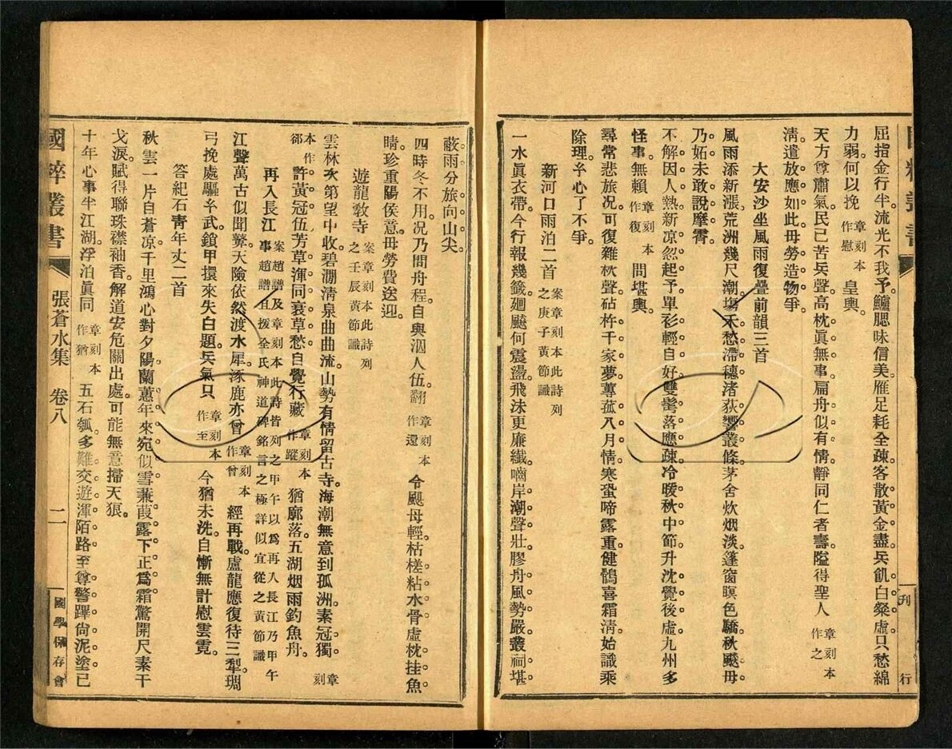 屈指金行半流光不我予鱸腮味信美雁足耗全疎客散黃金盡兵飢白粲虛只愁綿
力弱何以挽章刻本作慰皇輿
天方尊肅氣民已苦兵聲高枕眞無事扁舟似有情靜同仁者壽隘得聖人章刻本作之
淸遣放應如此毋勞造物爭
大安沙坐風雨復疊前韻三首
風雨添新漲荒洲幾尺潮塲禾愁滯穗渚荻響叢條茅舍炊烟淡篷窗瞑色驕秋颷毋
乃妬未敢說摩霄
不解因人熱新凉忽起予單衫輕自好雙鬢落應疎冷暖秋中節升沈覺後虛九州多
怪事無賴章刻本作復問堪輿
尋常悲旅况可復雜秋聲砧杵千家夢蓴菰八月情寒蛩啼露重健鶻喜霜淸始識乘
除理平心了不爭
新河口雨泊二首案章刻本此詩列之庚子黃節識
一水眞衣帶今行報幾籤廻颷何震盪飛沬更廉纖嚙岸潮聲壯膠舟風勢嚴叢祠堪
蔽雨分旅向山尖
四時冬不用况乃間舟程自與洄人伍翻章刻本作還令颶母輕枯槎粘水骨虛枕挂魚
睛珍重陽侯意毋勞費送迎
遊龍敎寺案章刻本此詩列之壬辰黃節識
雲林次第望中收碧澗淸泉曲曲流山勢有情留古寺海潮無意到孤洲素冠獨章刻
本作郤許黃冠伍芳草渾同衰草愁自覺行藏章刻本作蹤猶廓落五湖烟雨釣魚舟
再入長江案趙譜及章刻本此詩皆列之甲午以爲再入長江乃甲午事趙譜且援全氏神道碑銘言之極詳似宜從之黃節識
江聲萬古似聞鼙天險依然渡水犀涿鹿亦曾章刻本作曾經再戰盧龍應復待三犁琱
弓挽處驅乎武鎖甲擐來失白題兵氣只章刻本作至今猶未洗自慚無計慰雲霓
答紀石靑年丈二首
秋雲一片自蒼凉千里鴻心對夕陽蘭蕙年來宛似雪蒹葭露下正爲霜驚開尺素干
戈淚賦得聯珠襟袖香解道安危關出處可能無意掃天狼
十年心事半江湖浮泊眞同章刻本作猶五石瓠多難交遊渾陌路至尊警蹕尙泥塗已
國粹叢書
張蒼水集 卷八
二
國學保存會
刊行